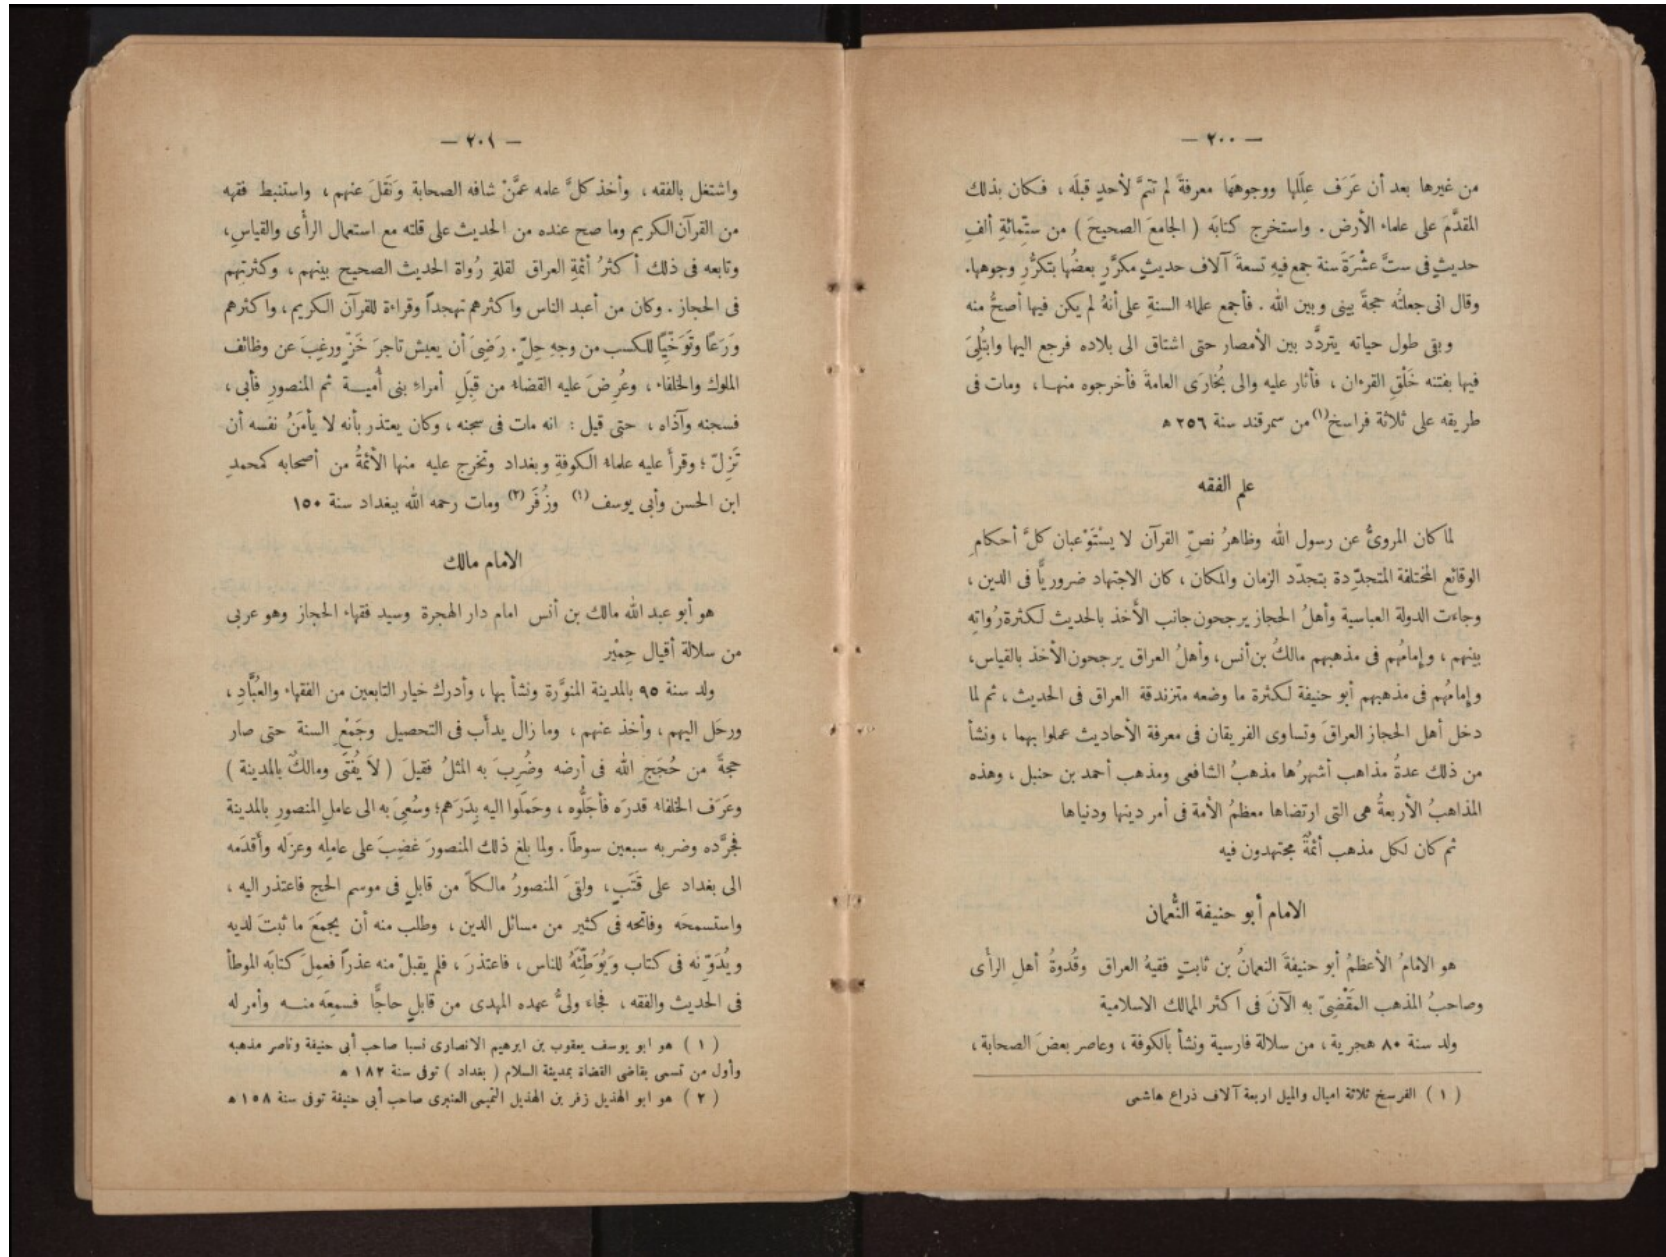 — ٢٠٠ —
من غيرها بعد أن عَرَف عِلَلها ووجوهَها معرفةً لم تتمَّ لأحدٍ قبلَه ، فكان بذلك
المقدَّمَ على علماء الأرض . واستخرج كتابَه ( الجامعَ الصحيحَ ) من ستِّمائةِ ألفِ
حديثٍ فى ستَّ عشْرَةَ سنة جمع فيهِ تسعةَ آلاف حديثٍ مكرَّرٍ بعضُها بتكرُّرِ وجوهها.
وقال انى جعلتُه حجةً بينى وبين الله . فأجمع علماء السنةِ على أنهُ لم يكن فيها أصحُّ منه
وبقى طول حياته يتردَّد بين الأمصار حتى اشتاق الى بلاده فرجع اليها وابتُلِىَ
فيها بفتنه خَلْقِ القرءان ، فأثار عليه والى بُخارَى العامةَ فأخرجوه منهـا ، ومات فى
طريقه على ثلاثة فراسخ(١) من سمرقند سنة ٢٥٦ ه
علم الفقه
لما كان المروىُّ عن رسول الله وظاهرُ نصِّ القرآن لا يسْتَوْعبان كلَّ أحكامِ
الوقائع المختلفة المتجدِّدة بتجدّد الزمان والمكان ، كان الاجتهاد ضروريًّا فى الدين ،
وجاءت الدولة العباسية وأهلُ الحجاز يرجحون جانب الأخذ بالحديث لكثرة رُواتِه
بينهم ، وإمامُهم فى مذهبهم مالكُ بن أنس، وأهلُ العراق يرجحون الأخذ بالقياس،
وإمامُهم فى مذهبهم أبو حنيفة لكثرة ما وضعه متزندقة العراق فى الحديث ، ثم لما
دخل أهل الحجاز العراقَ وتساوى الفريقان فى معرفة الأحاديث عملوا بهما ، ونشأ
من ذلك عدةُ مذاهب أشهرُها مذهبُ الشافعى ومذهب أحمد بن حنبل ، وهذه
المذاهبُ الأربعةُ هى التى ارتضاها معظمُ الأمة فى أمر دينها ودنياها
ثم كان لكل مذهب أئمةٌ مجتهدون فيه
الامام أبو حنيفة النُّعمان
هو الامامُ الأعظمُ أبو حنيفةَ النعمانُ بن ثابتٍ فقيهُ العراق وقُدوةُ أهلِ الرأى
وصاحبُ المذهب المَقْضِىّ به الآنَ فى اكثر الممالك الاسلامية
ولد سنة ٨٠ هجرية ، من سلالة فارسية ونشأ بالكوفة ، وعاصر بعضَ الصحابة ،
( ١ ) الفرسخ ثلاثة اميال والميل اربعة آلاف ذراع هاشمى
— ٢٠١ —
واشتغل بالفقه ، وأخذ كلَّ علمه عمَّنْ شافه الصحابة وَنَقَلَ عنهم ، واستنبط فقهه
من القرآن الكريم وما صح عنده من الحديث على قلته مع استعمال الرأى والقياسِ،
وتابعه فى ذلك أكثرُ أئمةِ العراق لقلةِ رُواة الحديث الصحيح بينهم ، وكثرتِهم
فى الحجاز . وكان من أعبد الناس واكثرهم تهجداً وقراءة للقرآن الكريم ، واكثرهم
وَرَعًا وتَوَخِّيًا للكسب من وجهِ حِلّ . رَضِىَ أن يعيش تاجرَ خَزٍّ ورغِبَ عن وظائف
الملوك والخلفاء ، وعُرِضَ عليه القضاء من قِبَلِ أمراءِ بنى أُميـــة ثم المنصورِ فأبى ،
فسجنه وآذاه ، حتى قيل : انه مات فى سجنه ، وكان يعتذر بأنه لا يأمَنُ نفسه أن
تَزِلّ ؛ وقرأ عليه علماء الكوفةِ وبغداد وتخرج عليه منها الأئمةُ من أصحابه كمحمدِ
ابن الحسن وأبى يوسف (١) وزُفَر (٢) ومات رحمه الله ببغداد سنة ١٥٠
الامام مالك
هو أبو عبد الله مالك بن أنس امام دار الهجرة وسيد فقهاء الحجاز وهو عربى
من سلالة أقيال حِمْير
ولد سنة ٩٥ بالمدينة المنوَّرة ونشأ بها ، وأدرك خيار التابعين من الفقهاء والعُبَّادِ ،
ورحَل اليهم ، وأخذ عنهم ، وما زال يدأب فى التحصيل وجَمْعِ السنة حتى صار
حجةً من حُجَجِ الله فى أرضه وضُرِبَ به المثلُ فقيلَ ( لاَ يُفتَى ومالكٌ بالمدينة )
وعَرَف الخلفاء قدرَه فأجَلُّوه ، وحَمَلوا اليه بِدَرَهم؛ وسُعِىَ به الى عاملِ المنصورِ بالمدينة
فجرَّده وضربه سبعين سوطًا . ولما بلغ ذلك المنصورَ غضِبَ على عامِله وعزَله وأقدَمه
الى بغداد على قَتَبٍ ، ولقىَ المنصورُ مالكاً من قابلٍ فى موسم الحج فاعتذر اليه ،
واستسمحَه وفاتحه فى كثير من مسائل الدين ، وطلب منه أن يجمَعَ ما ثبتَ لديه
ويُدَوِّنه فى كتاب وَيُوَطِّئَهُ للناس ، فاعتذرَ ، فلم يقبلْ منه عذراً فعمِلَ كتابَه الموطأ
فى الحديث والفقه ، فجاء ولىُّ عهده المهدى من قابلٍ حاجًّا فسمِعَه منـــه وأمر له
( ١ ) هو ابو يوسف يعقوب بن ابرهيم الانصارى نسبا صاحب أبى حنيفة وناصر مذهبه
وأول من تسمى بقاضى القضاة بمدينة السلام ( بغداد ) توفى سنة ١٨٢ ه
( ٢ ) هو ابو الهذيل زفر بن الهذيل التميمى العنبرى صاحب أبى حنيفة توفى سنة ١٥٨ ه